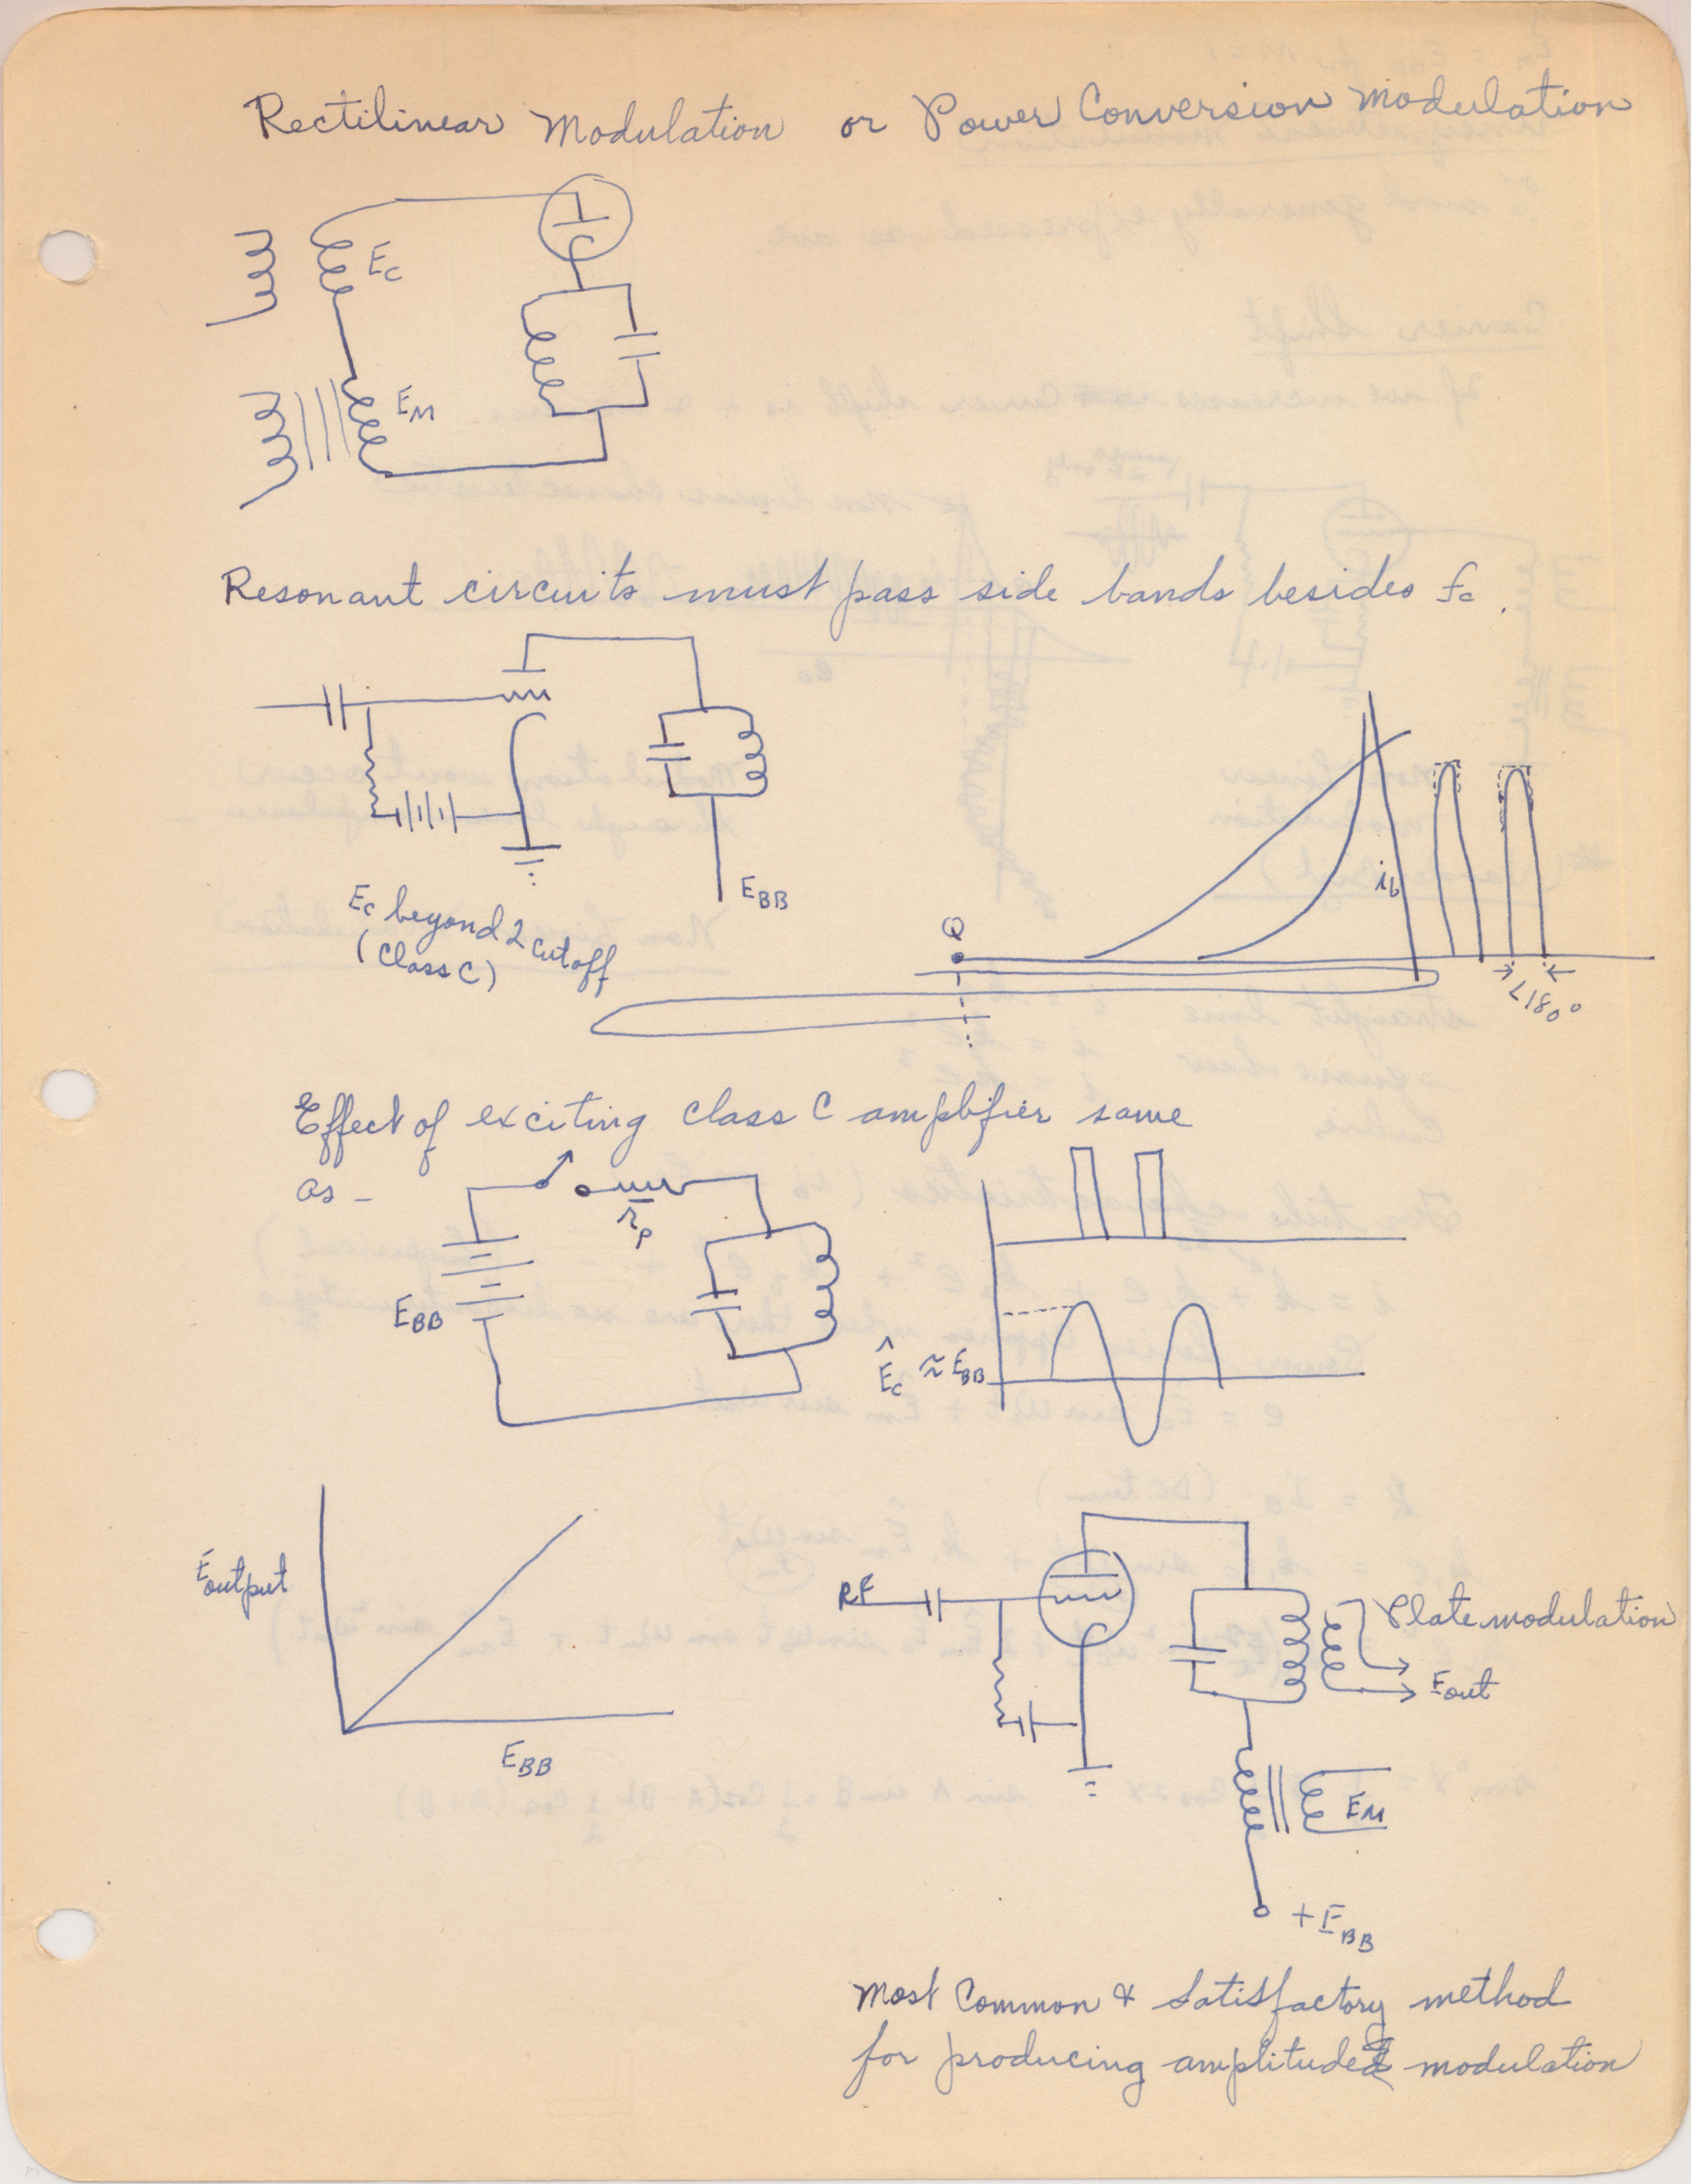 Rectilinear Modulation or Power Conversion Modulation
Ec
EM
Resonant circuits must pass side bands besides fc.
EBB
Ec beyond 2 cutoff
(Class C)
Q
ib
<180°
Effect of exciting class C amplifier same
as –
rp
EBB
Êc ≈ EBB
Eoutput
EBB
RF
Plate modulation
Eout
EM
+EBB
Most Common & Satisfactory method
for producing amplitude modulation